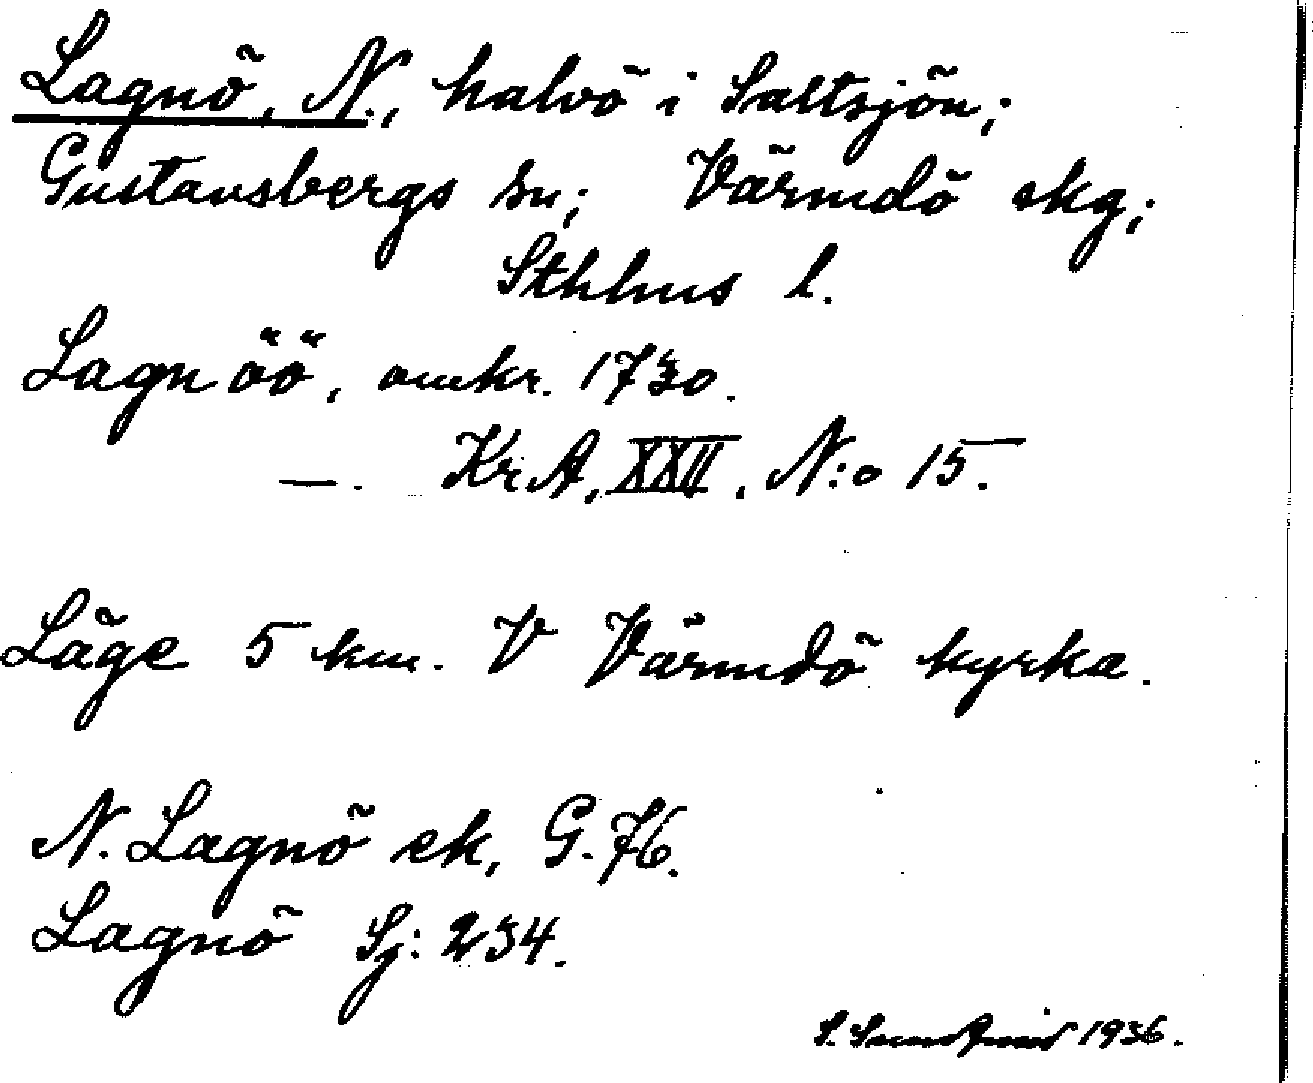 Lagnö, N., halvö i Saltsjön;
Gustavsbergs sn; Värmdö skg;
Sthlms l.
Lagnöö, omkr. 1730.
—. KrA, XXII, N:o 15.
Läge 5 km. V Värmdö kyrka.
N. Lagnö ek, G. 76.
Lagnö Sj: 234.
S. 1936.